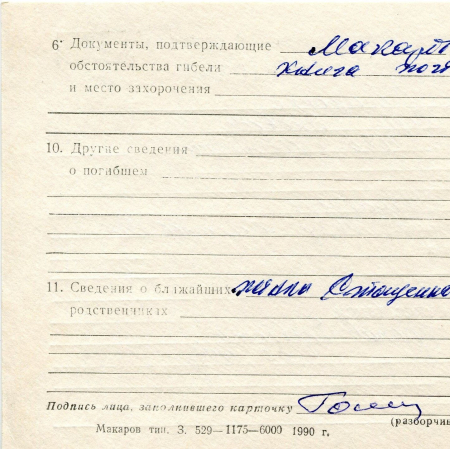 6· Документы, подтверждающие
обстоятельства гибели книга
и место захоронения
10. Другие сведения
о погибшем
11. Сведения о ближайших
родственниках
Подпись лица, заполнившего карточку
(разборчив
Макаров тип. З. 529—1175—6000 1990 г.